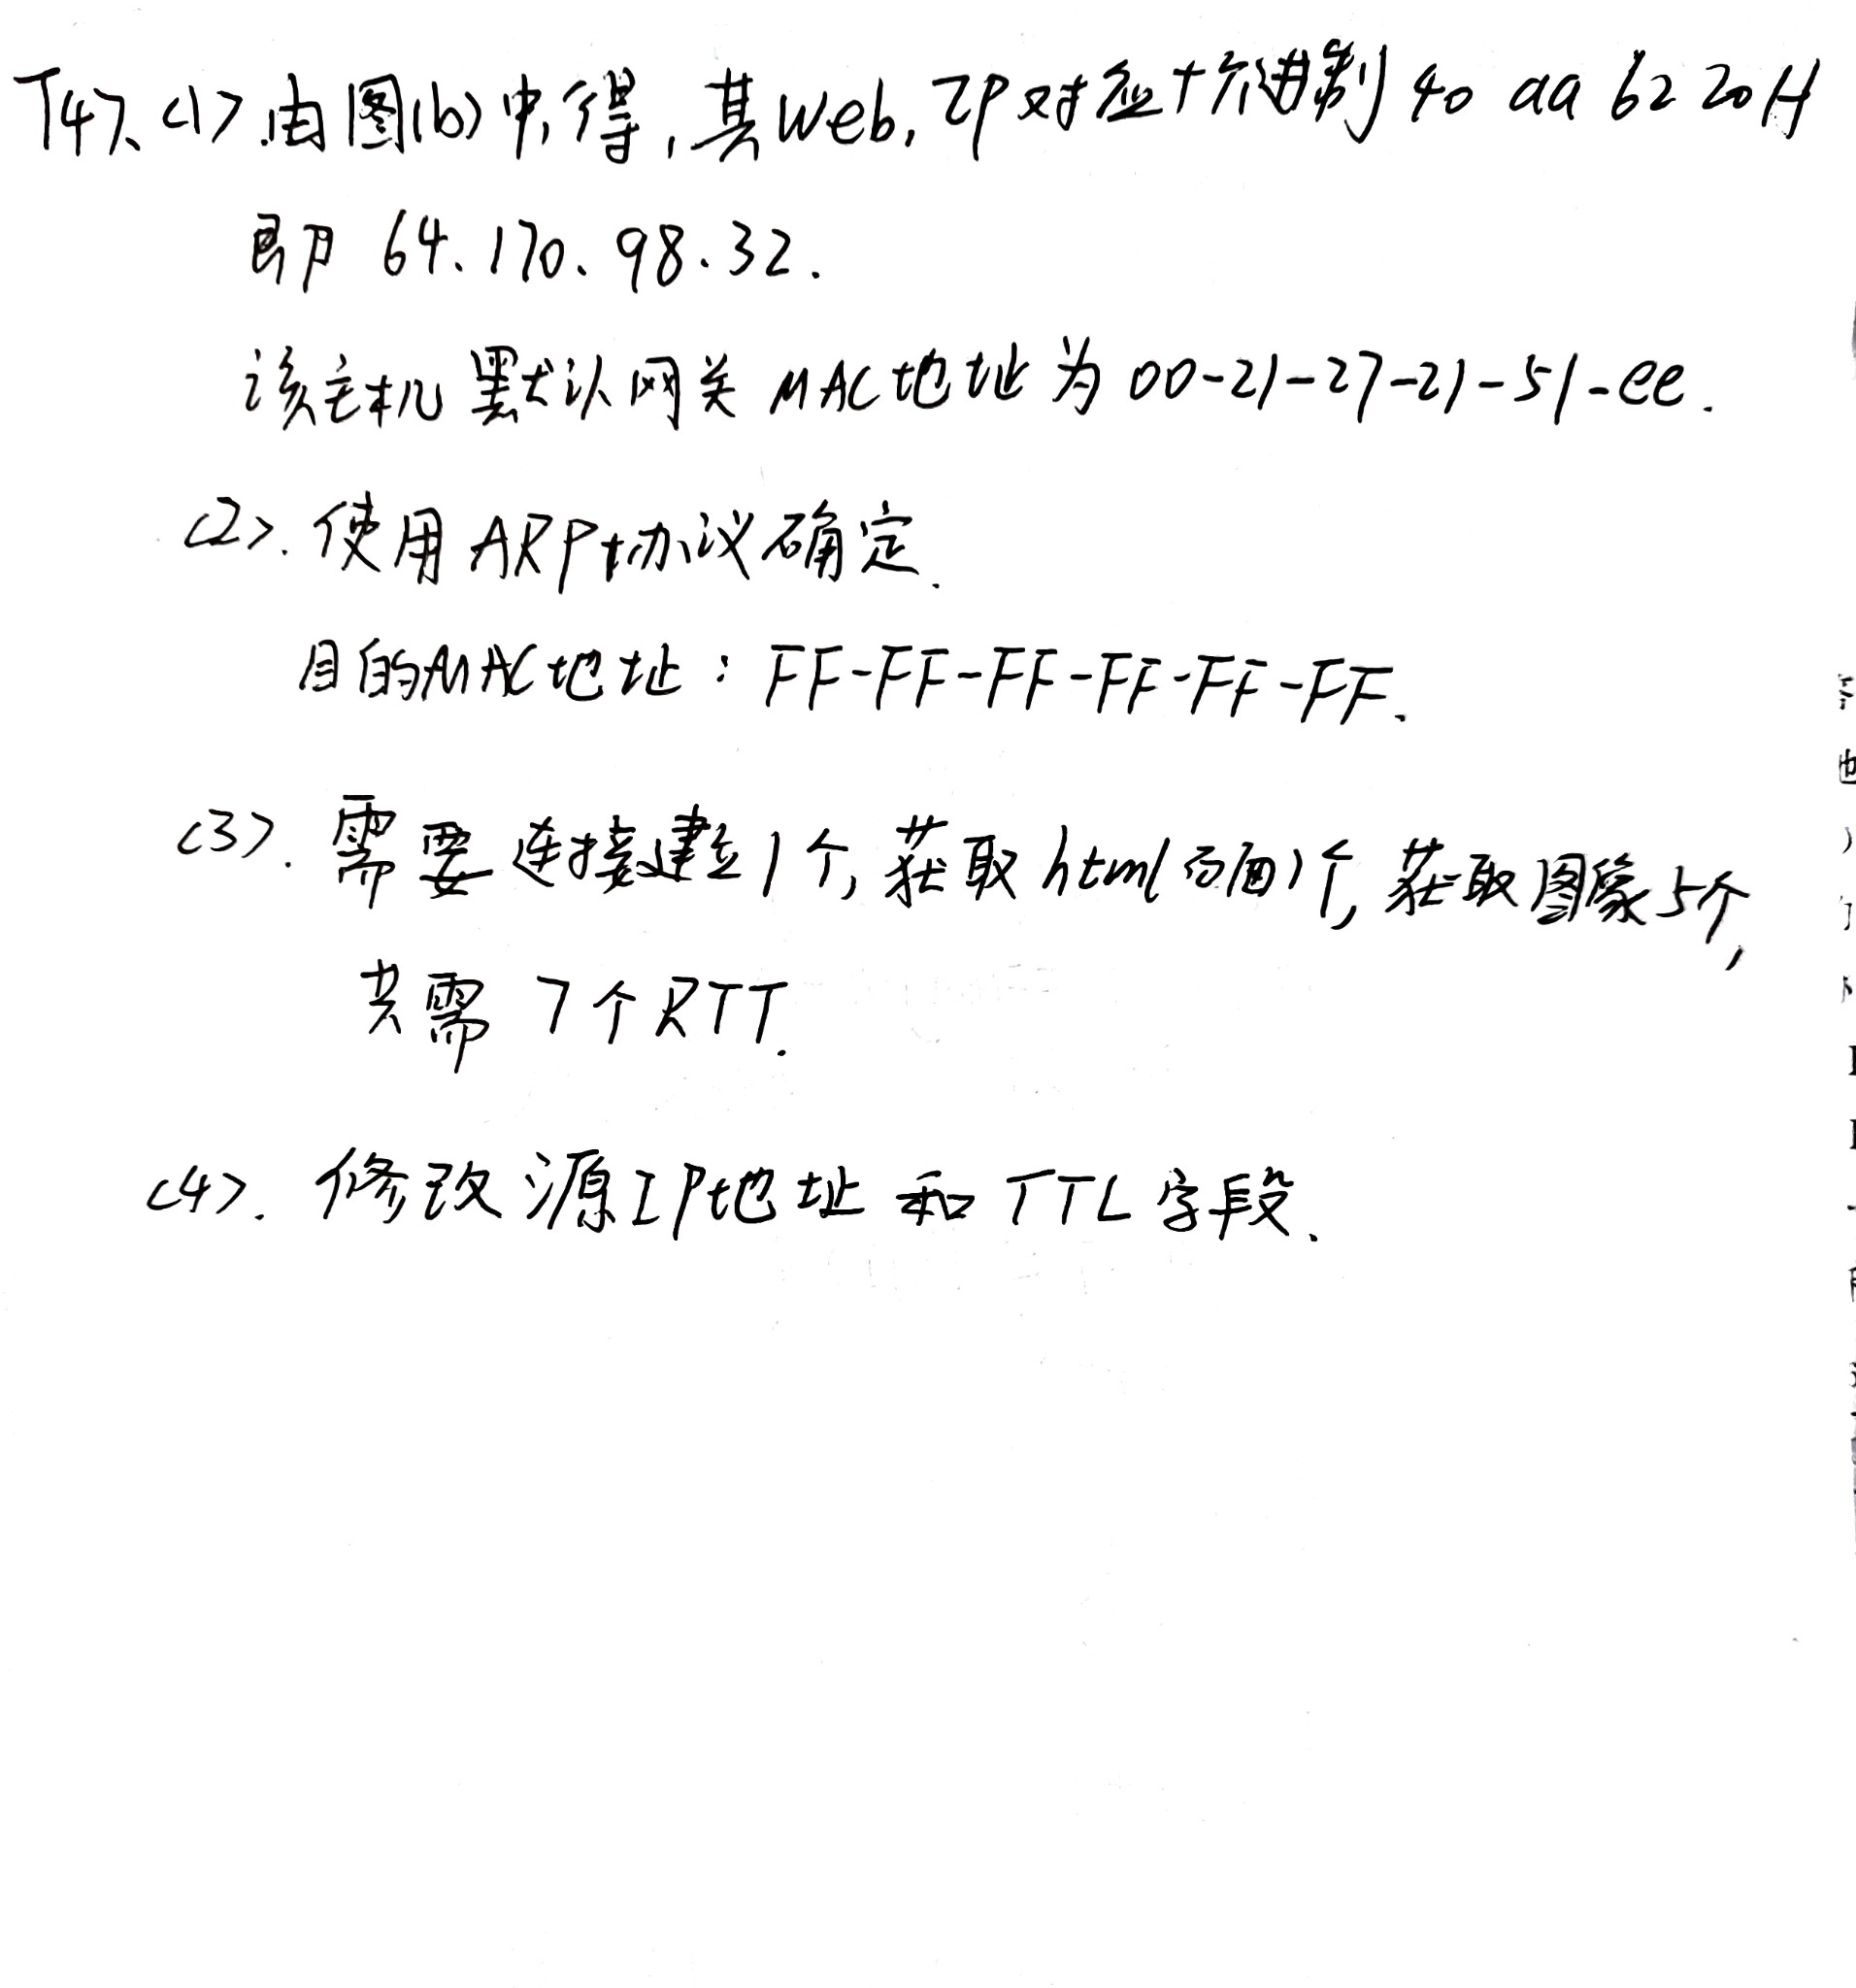 T47、(1).由图(b)中得,其Web,IP对应十六进制 40 aa 62 20H
即 64.170.98.32.
该主机默认网关MAC地址为 00-21-27-21-51-ee.
(2).使用ARP协议确定.
目的MAC地址:FF-FF-FF-FF-FF-FF.
(3).需要连接建立1个,获取html页面1个,获取图像5个,
共需 7个RTT.
(4).修改源IP地址和TTL字段.